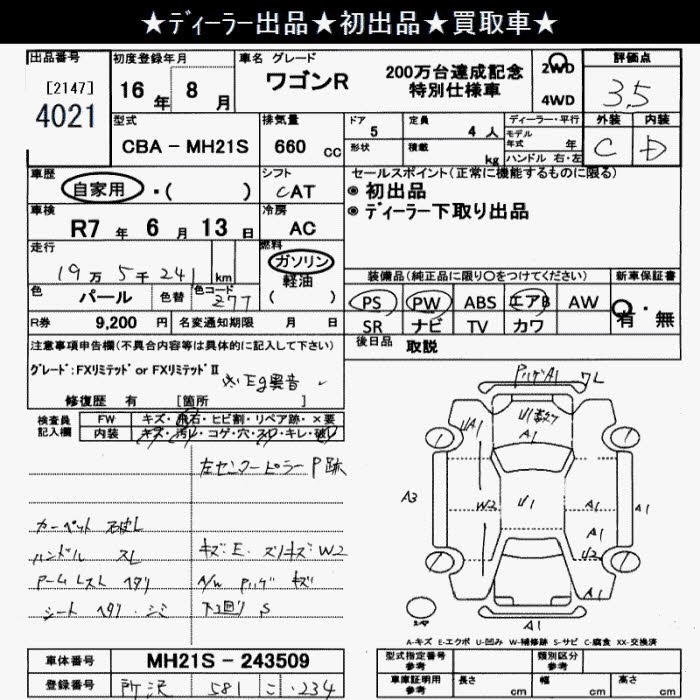 ★ディーラー出品★初出品★買取車★
出品番号
[2147]
4021
初度登録年月
16 年 8 月
車名 グレード
ワゴンR
200万台達成記念
特別仕様車
2WD
4WD
評価点
3.5
外装
内装
C
D
型式
CBA - MH21S
排気量
660 cc
ドア
5
定員
4 人
形状
積載
kg
ディーラー・平行
モデル
年式 年
ハンドル 右・左
車歴
自家用 ・( )
シフト
CAT
車検
R7 年 6 月 13 日
冷房
AC
セールスポイント(正常に機能するものに限る)
◉ 初出品
◉ ディーラー下取り出品
走行
19万5千241 km
燃料
ガソリン
軽油
( )
色
パール
色替
色コード
277
R券
9,200 円
名変通知期限 月 日
装備品(純正品に限り〇をつけてください)
新車保証書
PS PW ABS エアB AW
SR ナビ TV カワ
有 ・ 無
後日品 取説
注意事項申告欄(不具合内容等は具体的に記入して下さい)
グレード:FXリミテッド or FXリミテッドⅡ
※Eg異音
修復歴 有 [箇所 ]
検査員
記入欄
FW
キズ・飛石・ヒビ割・リペア跡・×要
内装
キズ・汚レ・コゲ・穴・スレ・キレ・破レ
左センターピラー P跡
カーペット 破レ
ハンドル スレ
キズ:E. ズリキズ:W2
アームレスト ヘタリ
A/W ハゲ キズ
シート ヘタリ・シミ
下回り S
ハゲA1
ワレ
U1数ケ
A1
UA1
A3
W2
U1
A1
A1
A1
U2
A1
A1
A-キズ E-エクボ U-凹み W-補修跡 S-サビ C-腐食 XX-交換済
車体番号
MH21S - 243509
登録番号
所沢 581 こ ・234
型式指定番号
参考
類別区分
参考
車庫証明用
参考
長さ cm
幅 cm
高さ cm